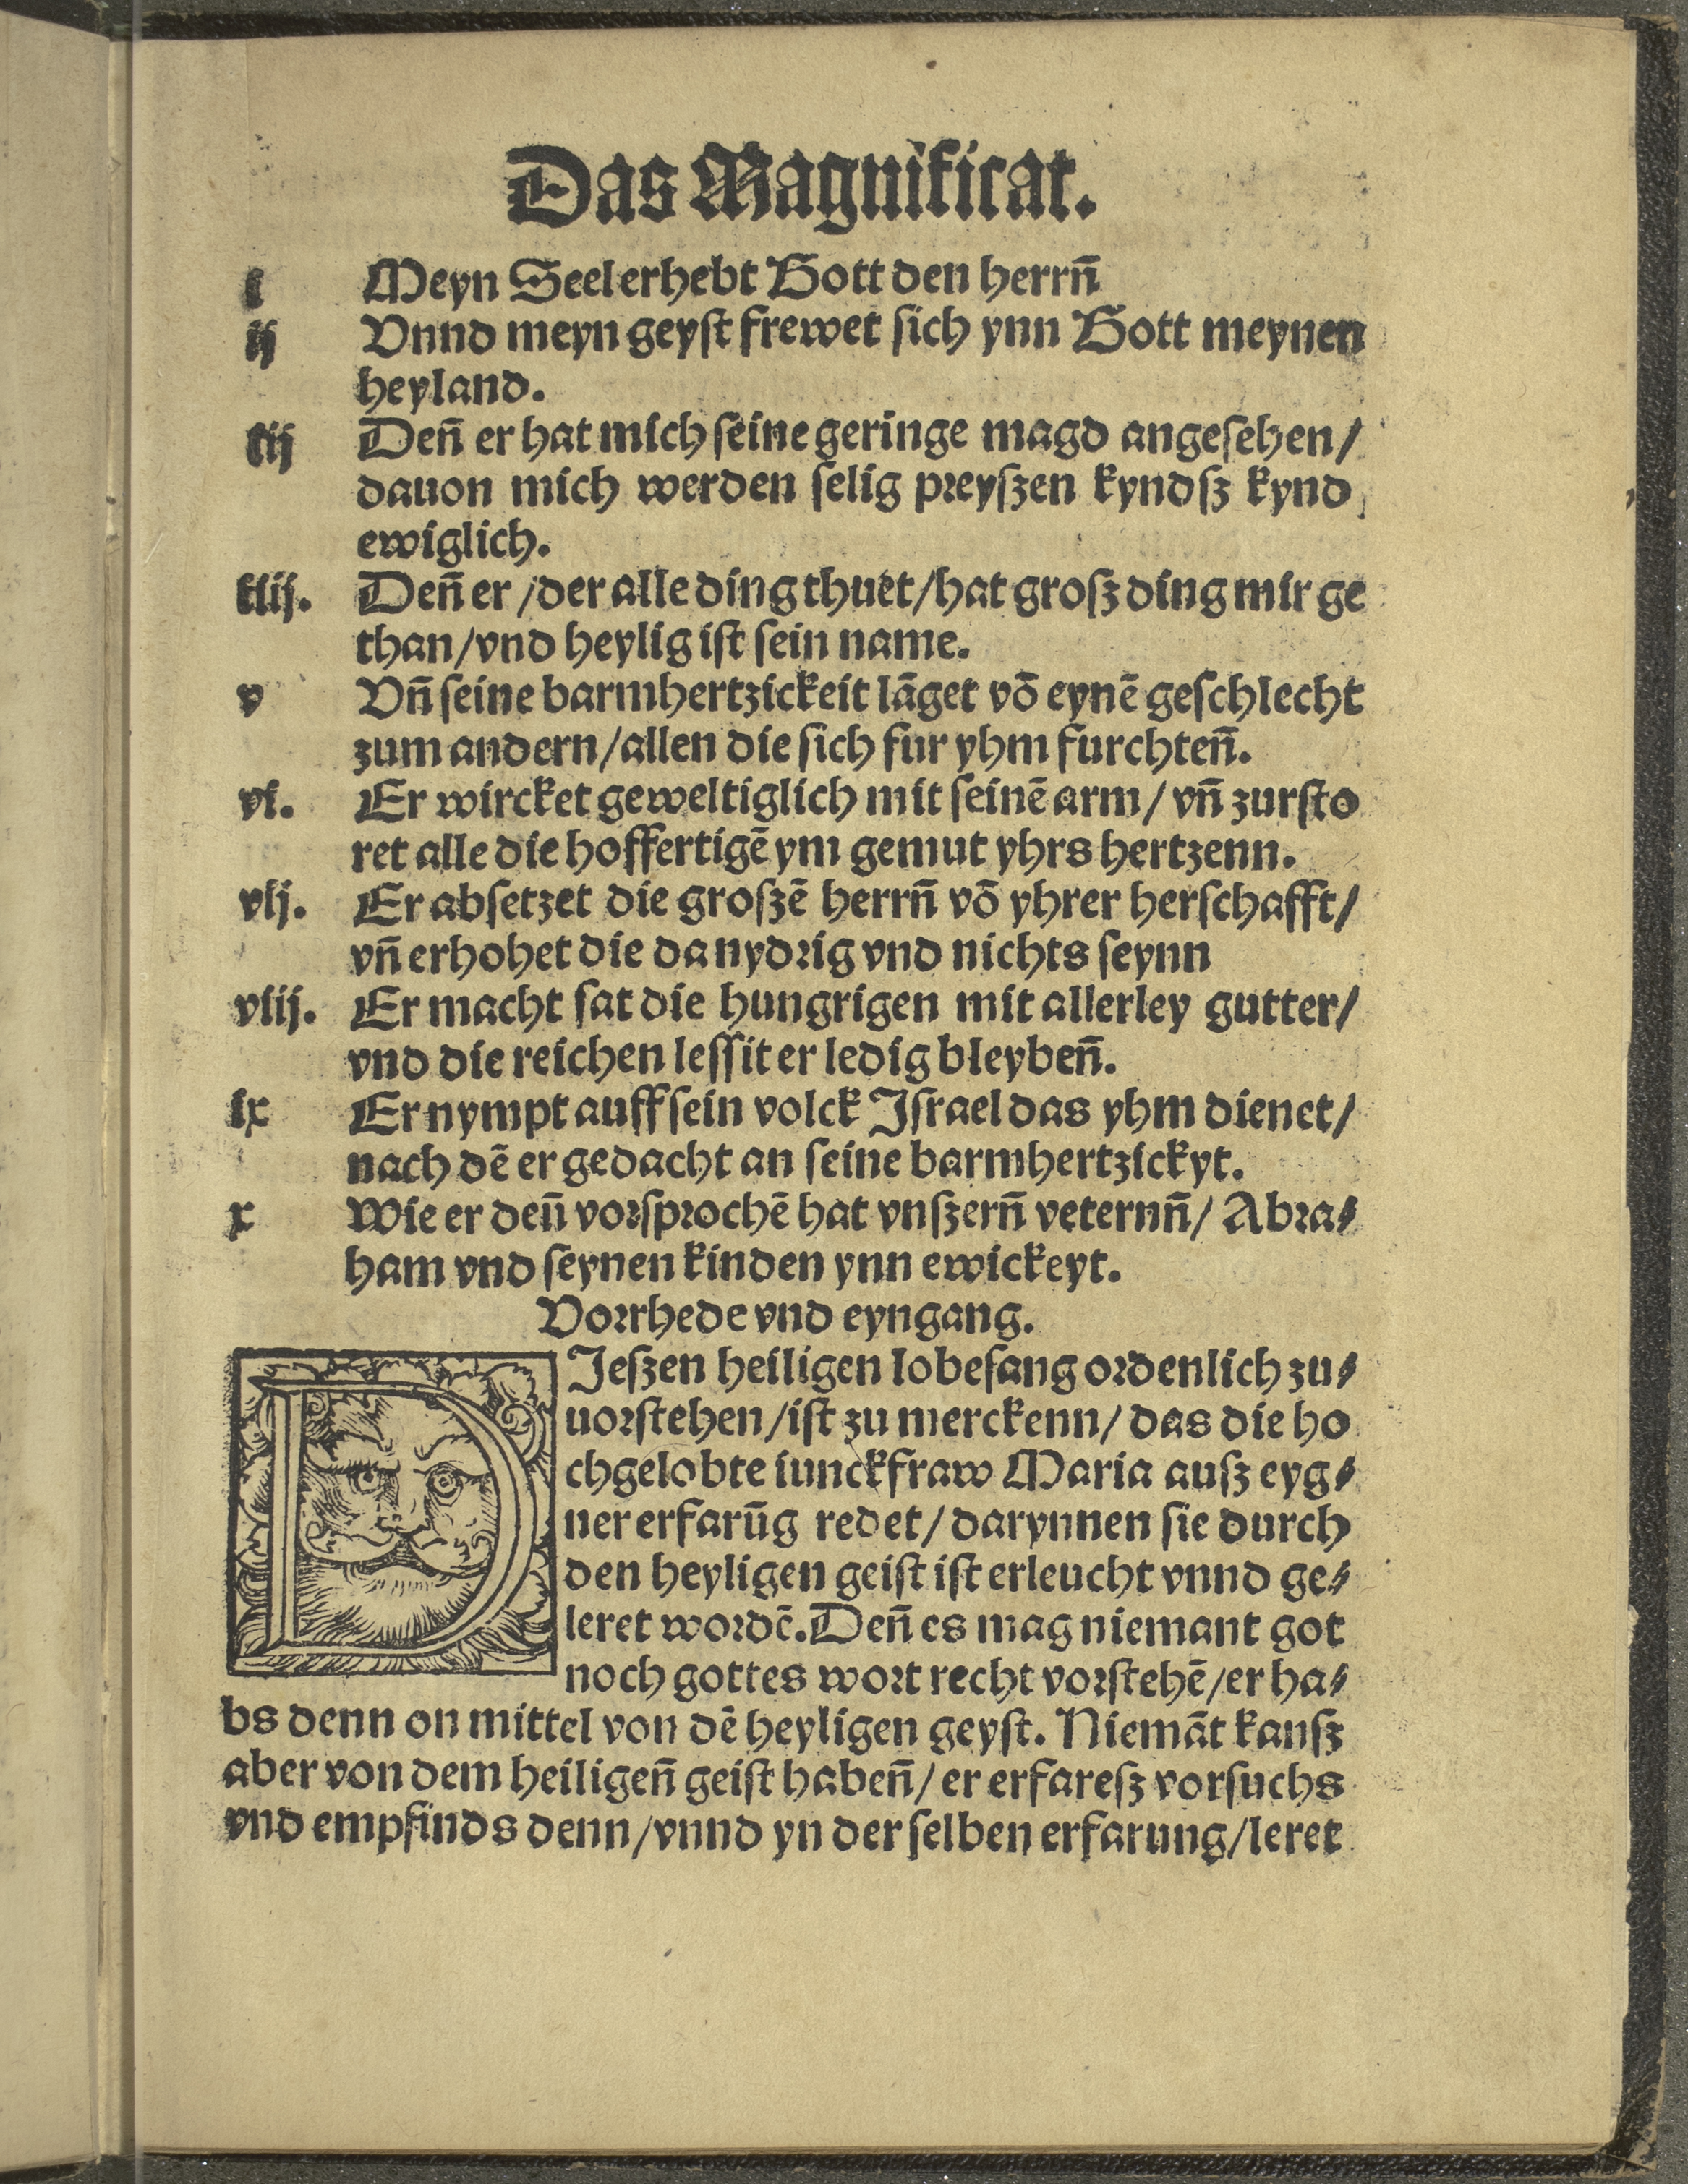 Das Magnificat.
i Meyn Seel erhebt Gott den herrn̄
ij Vnnd meyn geyst frewet sich ynn Gott meynen
heyland.
iij Den̄ er hat mich ſeine geringe magd angeſehen/
dauon mich werden ſelig preyſzen kyndſz kynd
ewiglich.
iiij. Den̄ er /der alle ding thuet/hat groſz ding mir ge
than/vnd heylig iſt ſein name.
v Vn̄ ſeine barmhertzickeit lāget vō eynē geſchlecht
zum andern/allen die ſich fur yhm furchten̄.
vi. Er wircket geweltiglich mit ſeinē arm/ vn̄ zurſto
ret alle die hoffertigē ym gemut yhrs hertzenn.
vij. Er abſetzet die groſzē herrn̄ vō yhrer herſchafft/
vn̄ erhohet die da nydrig vnd nichts ſeynn
viij. Er macht ſat die hungrigen mit allerley gutter/
vnd die reichen leſſit er ledig bleyben̄.
ix Er nympt auff ſein volck Iſrael das yhm dienet/
nach dē er gedacht an ſeine barmhertzickyt.
x Wie er den̄ vorſprochē hat vnſzern̄ veternn̄/ Abra⸗
ham vnd ſeynen kinden ynn ewickeyt.
Vorrhede vnd eyngang.
DIeſzen heiligen lobeſang ordenlich zu⸗
uorſtehen/iſt zu merckenn/ das die ho
chgelobte iunckfraw Maria auſz eyg⸗
ner erfarūg redet/ darynnen ſie durch
den heyligen geiſt iſt erleucht vnnd ge⸗
leret wordē. Den̄ es mag niemant got
noch gottes wort recht vorſtehē/er ha⸗
bs denn on mittel von dē heyligen geyſt. Niemāt kanſz
aber von dem heiligen̄ geiſt haben̄/ er erfareſz vorſuchs
vnd empfinds denn/vnnd yn der ſelben erfarung/leret